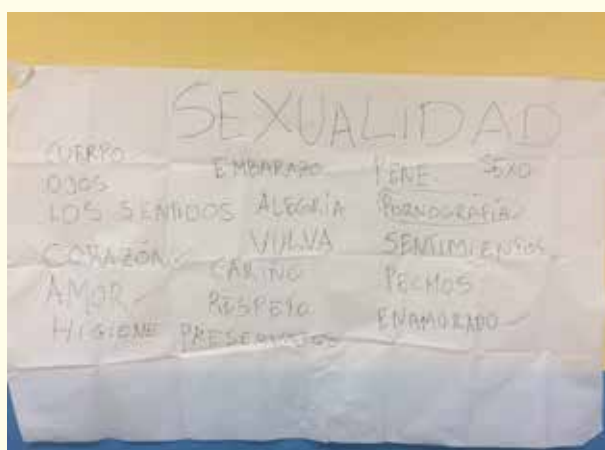 SEXUALIDAD
CUERPO
OJOS
LOS SENTIDOS
CORAZÓN
AMOR
HIGIENE
EMBARAZO
ALEGRÍA
VULVA
CARIÑO
RESPETO
PRESERVATIVOS
PENE SEXO
PORNOGRAFÍA
SENTIMIENTOS
PECHOS
ENAMORADO